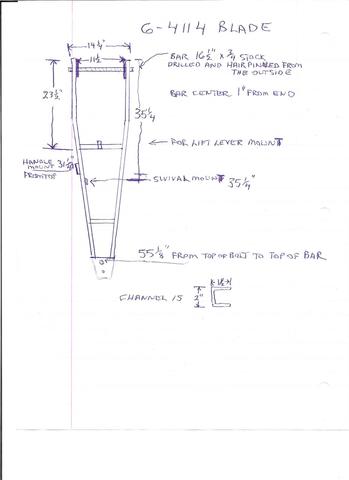 6-4114 BLADE
14¼"
11½"
BAR 16½" X ¾ STOCK
DRILLED AND HAIRPINNED FROM
THE OUTSIDE
BAR CENTER 1" FROM END
23½"
35¼
FOR LIFT LEVER MOUNT
HANDLE
MOUNT
SWIVAL MOUNT 35¼"
55⅛" FROM TOP OF BOLT TO TOP OF BAR
CHANNEL IS
2"